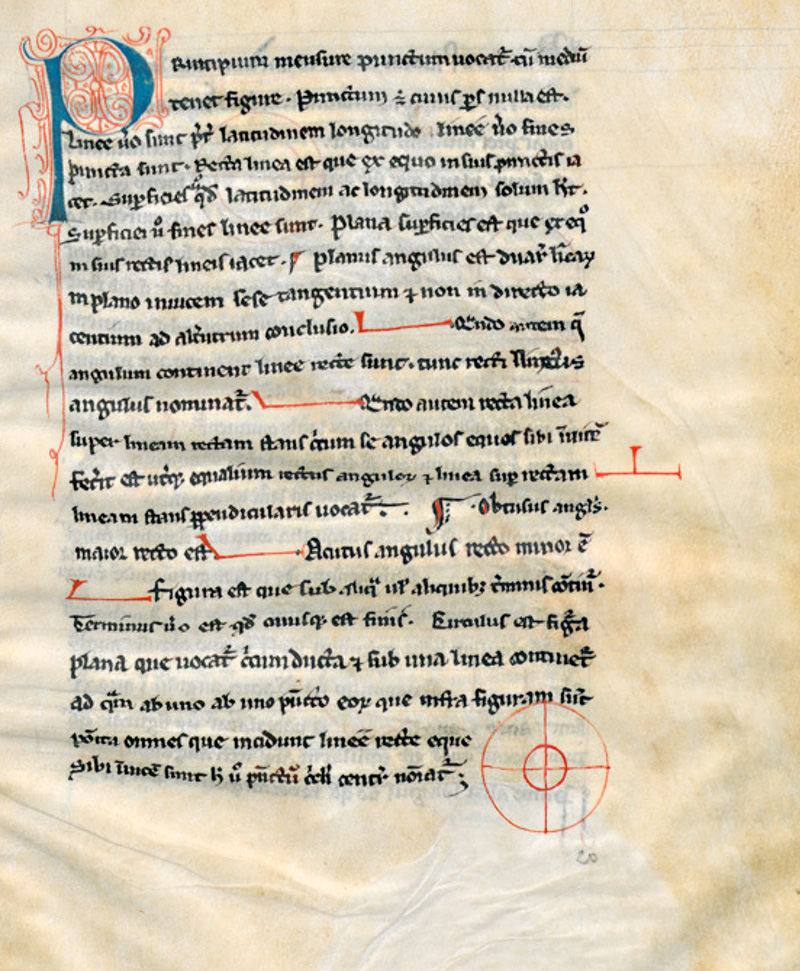 Principium mensure punctum vocat̃ cũ mediũ
tenet figure. Punctum ÷ cuius ꝑs nulla est.
Linee ũo sunt p̃t̃ latitudinem longitudo linee ũo fines
puncta sunt. Recta linea est que ex equo in suis punctis ia
cet. Suꝑficies qd̃ latitudinem ac longitudinem solum hr̃t.
Suꝑficiei ũ fines linee sunt. Plana suꝑficies est que ex eqo
in suis rectis lineis iacet. planus angulus est duar̃ liñaꝝ
in plano inuicem sese tangentium ⁊ non in directo ia
centium ad alt̃utrum conclusio. Qñdo autem q̃
angulum continent linee recte sunt. tunc recti
angulus nominat̃. Qñdo autem recta linea
super lineam rectam stans c̃cum se angulos equos sibi
fec̃it est utq̃ꝫ equalium rectus anguloꝝ ⁊ linea suꝑ rectam
lineam stans ꝑpendicularis uocat̃. Obtusus angłs.
maior recto est. Acutus angulus recto minor ẽ
figura est que sub aliq̃ uł aliquibꝫ t̃minis cõtiñ.
Terminus ũo est qd̃ cuiusqꝫ est finis. Circulus est fig̃a
plana que uocat̃ c̃cumducta ⁊ sub una linea continet̃
ad qm̃ ab uno ab uno pũcto eoꝝ que infra figuram sũt
põita omnes que incidunt linee recte eque
sibi sunt h̃ ũ pũctũ c̃cl̃i cent̃ noiat̃;
20